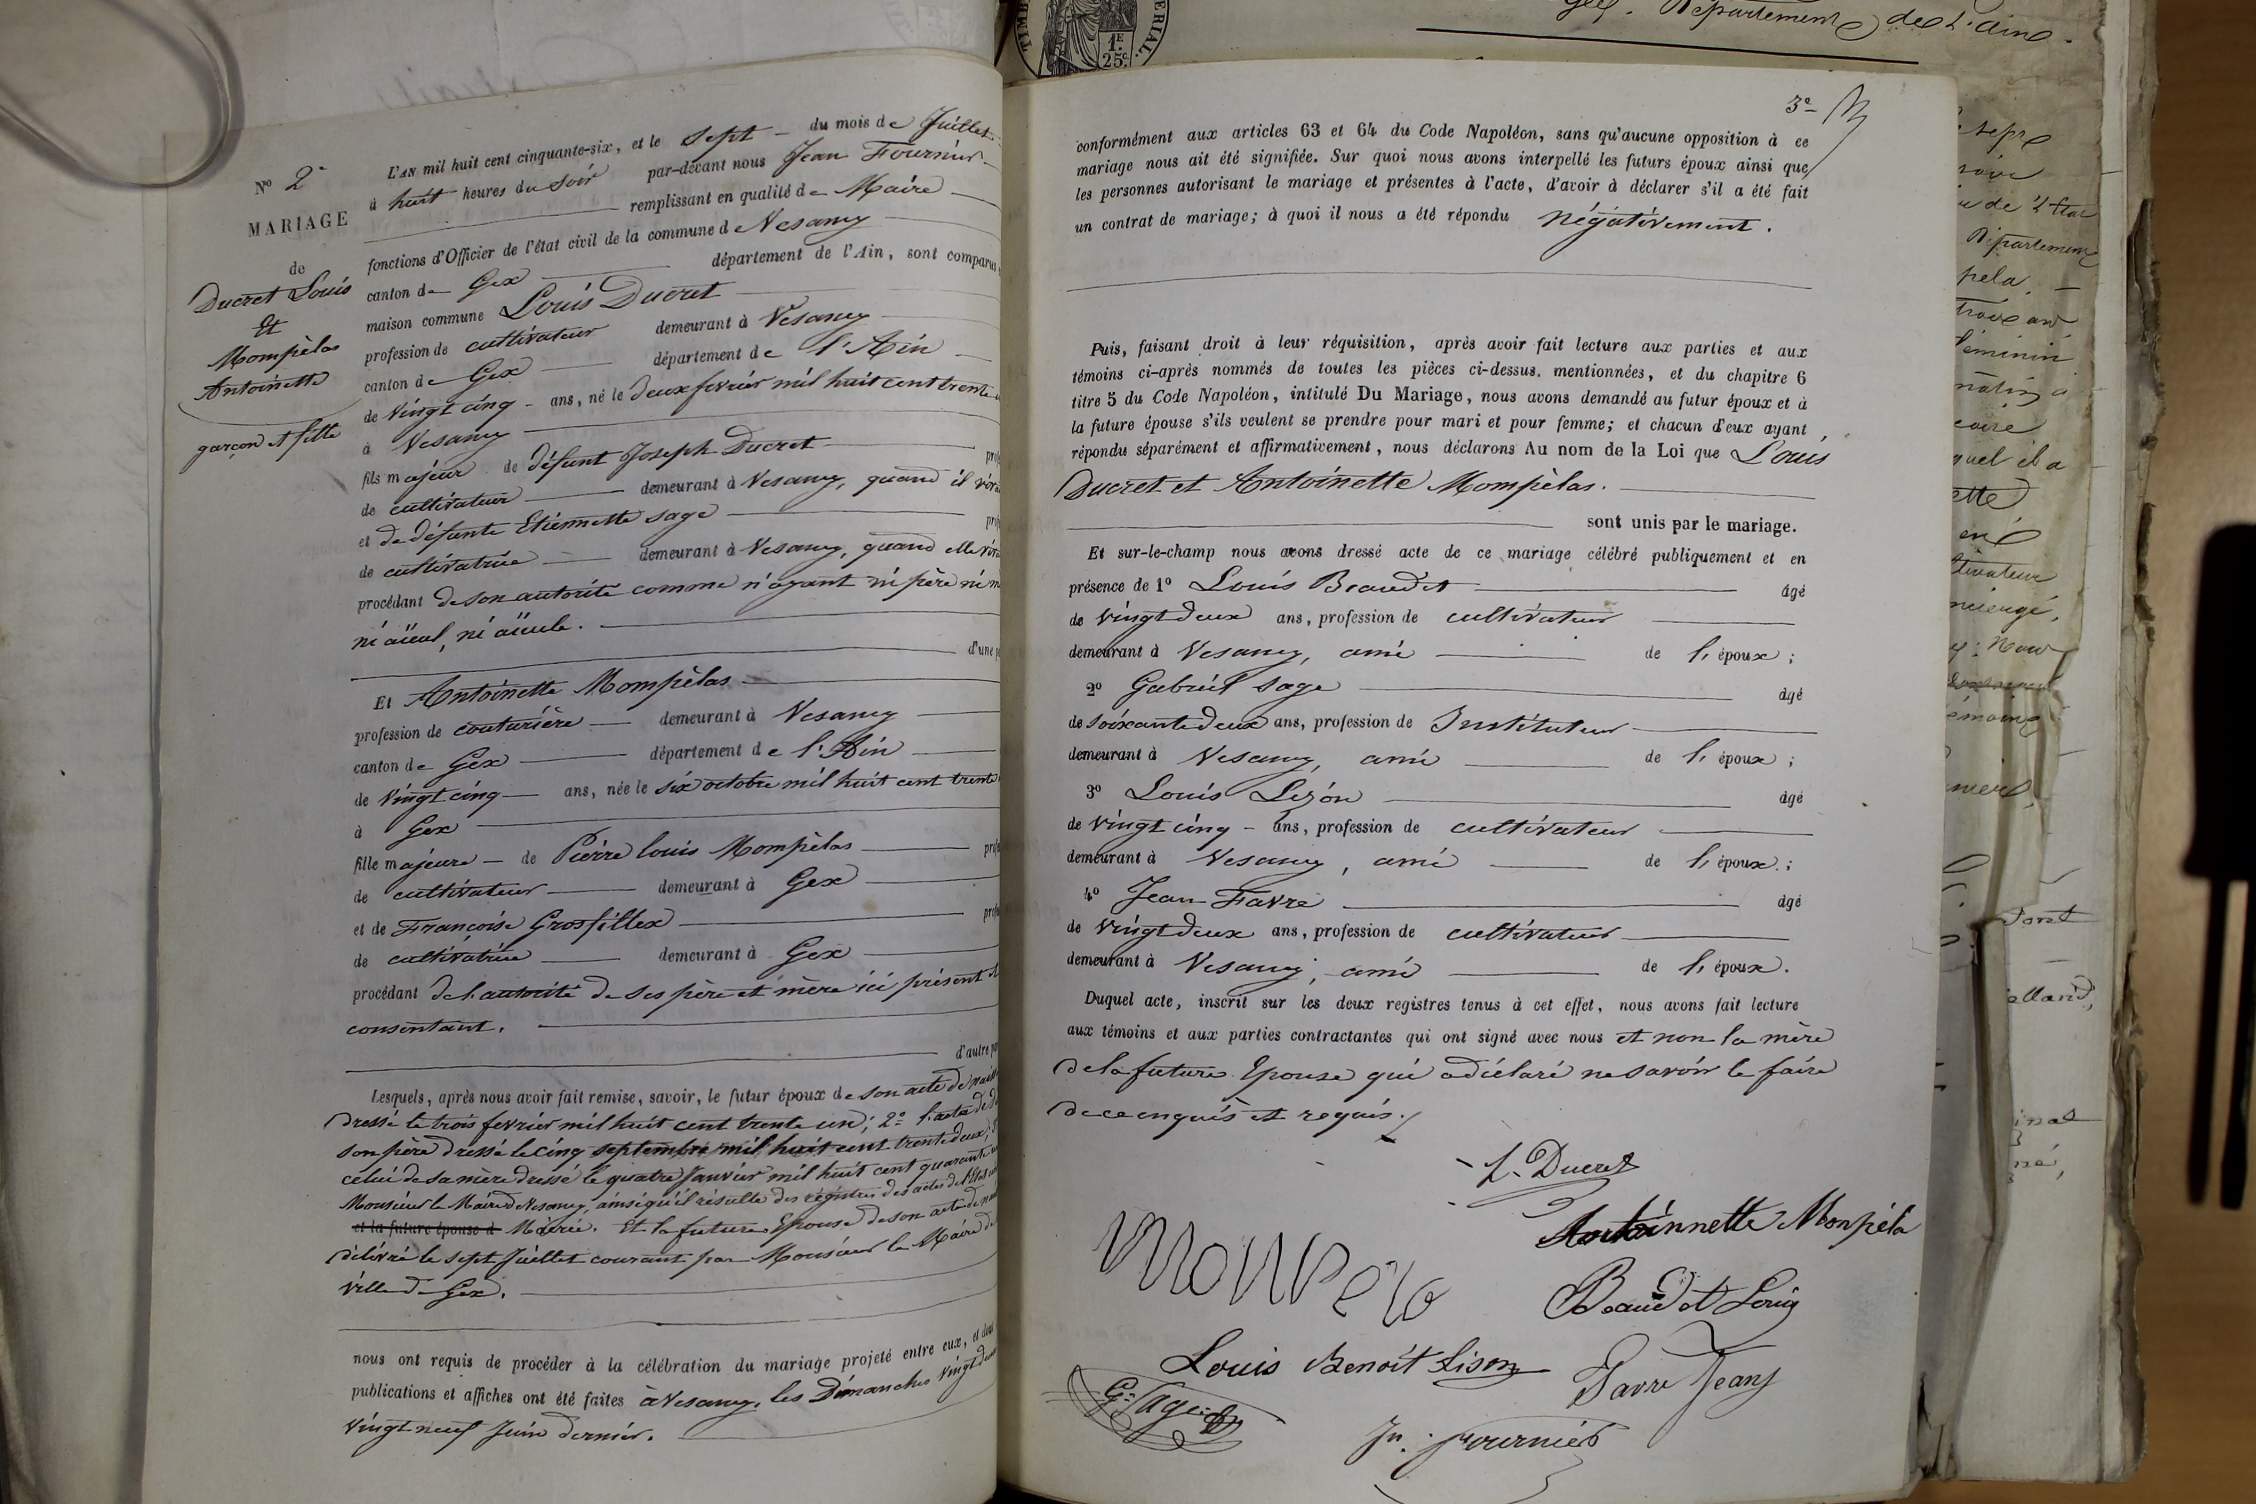 N° 2e
MARIAGE
de
Ducret Louis
Et
Mompèlas
Antoinette
garçon et fille
L'AN mil huit cent cinquante-six, et le sept du mois de Juillet
à huit heures du soir par-devant nous Jean Fournier
remplissant en qualité de Maire
fonctions d'Officier de l'état civil de la commune d Vesancy
canton de Gex département de l'Ain, sont comparus
maison commune Louis Ducret
profession de cultivateur demeurant à Vesancy
canton de Gex département de l'Ain
de vingt cinq ans, né le deux fevrier mil huit cent trente
à Vesancy
fils majeur de défunt Joseph Ducret
de cultivateur demeurant à Vesancy, quand il
et de défunte Etiennette Sage
de cultivatrice demeurant à Vesancy, quand elle
procédant de son autorité comme n'ayant ni père ni
ni aïeul, ni aïeule.
d'une
Et Antoinette Mompèlas
profession de couturière demeurant à Vesancy
canton de Gex département de l'Ain
de vingt cinq ans, née le six octobre mil huit cent trente
à Gex
fille majeure de Pierre louis Mompèlas
de cultivateur demeurant à Gex
et de Françoise Grosfillex
de cultivatrice demeurant à Gex
procédant de l'autorité de ses père et mère ici présent et
consentant.
d'autre
Lesquels, après nous avoir fait remise, savoir, le futur époux de son acte de
dressé le trois fevrier mil huit cent trente un; 2° l'acte de
son père dressé le cinq septembre mil huit cent trente deux;
celui de sa mère dressé le quatre Janvier mil huit cent quarante
Monsieur le Maire de Vesancy, ainsi qu'il résulte des régistres des actes de l'Etat
et la future épouse d Mairie. Et la future Epouse de son acte de
délivré le sept Juillet courant par Monsieur le Maire de
ville de Gex.
nous ont requis de procéder à la célébration du mariage projeté entre eux, et dont
publications et affiches ont été faites à Vesancy, les Dimanches vingt deux
vingt neuf Juin dernier.
TIMB ERIAL.
1E
25c.
Département de l'Ain.
3e
conformément aux articles 63 et 64 du Code Napoléon, sans qu'aucune opposition à ce
mariage nous ait été signifiée. Sur quoi nous avons interpellé les futurs époux ainsi que
les personnes autorisant le mariage et présentes à l'acte, d'avoir à déclarer s'il a été fait
un contrat de mariage; à quoi il nous a été répondu négativement.
Puis, faisant droit à leur réquisition, après avoir fait lecture aux parties et aux
témoins ci-après nommés de toutes les pièces ci-dessus. mentionnées, et du chapitre 6
titre 5 du Code Napoléon, intitulé Du Mariage, nous avons demandé au futur époux et à
la future épouse s'ils veulent se prendre pour mari et pour femme; et chacun d'eux ayant
répondu séparément et affirmativement, nous déclarons Au nom de la Loi que Louis
Ducret et Antoinette Mompèlas.
sont unis par le mariage.
Et sur-le-champ nous avons dressé acte de ce mariage célébré publiquement et en
présence de 1° Louis Beaudet âgé
de vingt deux ans, profession de cultivateur
demeurant à Vesancy, ami de l'époux;
2° Gabriel Sage âgé
de soixante deux ans, profession de Instituteur
demeurant à Vesancy, ami de l'époux;
3° Louis Lizon âgé
de vingt cinq ans, profession de cultivateur
demeurant à Vesancy, ami de l'époux;
4° Jean Favre âgé
de vingt deux ans, profession de cultivateur
demeurant à Vesancy, ami de l'époux.
Duquel acte, inscrit sur les deux registres tenus à cet effet, nous avons fait lecture
aux témoins et aux parties contractantes qui ont signé avec nous et non la mère
de la future Epouse qui a déclaré ne savoir le faire
de ce enquis et requis.
L. Ducret
Antoinnette Monpéla
monpela
Beaudet Louis
Louis Benoit Lison
Favre Jean
G. Sage
Jn. Fournier